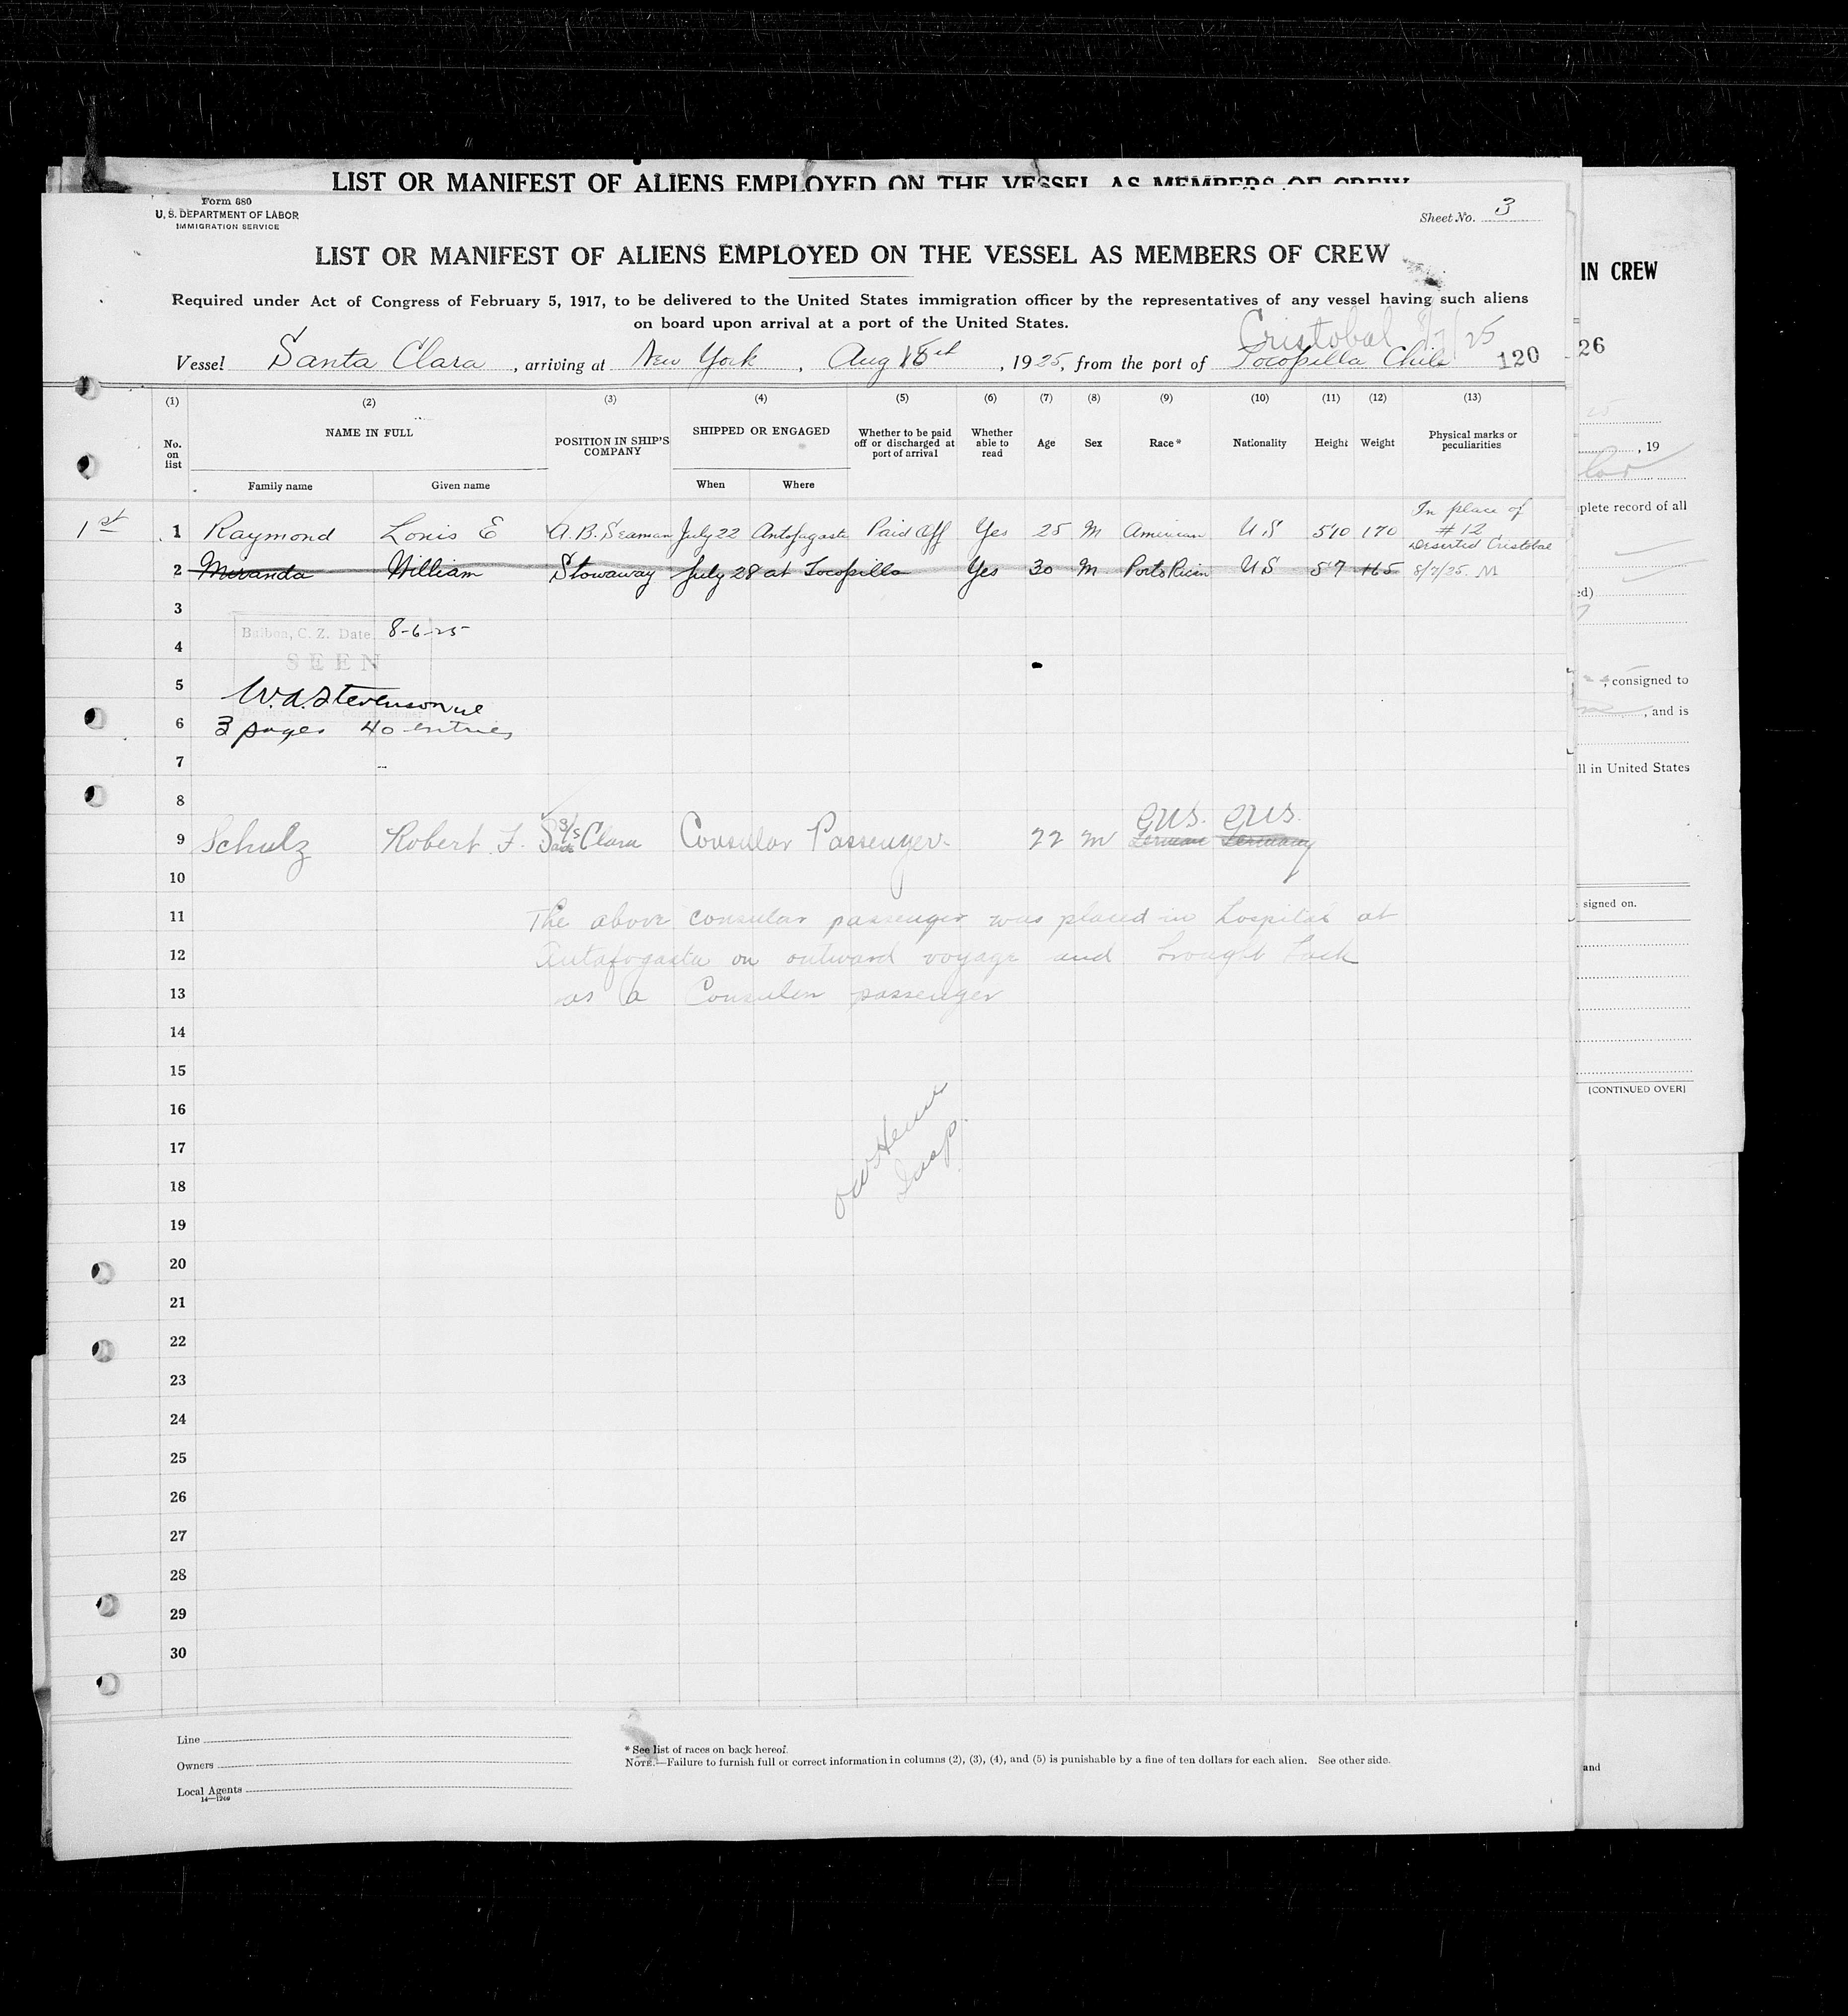 LIST OR MANIFEST OF ALIENS EMPLOYED ON THE VESSEL AS MEMBERS OF CREW
Form 680
U. S. DEPARTMENT OF LABOR
IMMIGRATION SERVICE
Sheet No. 3
LIST OR MANIFEST OF ALIENS EMPLOYED ON THE VESSEL AS MEMBERS OF CREW
IN CREW
Required under Act of Congress of February 5, 1917, to be delivered to the United States immigration officer by the representatives of any vessel having such aliens
on board upon arrival at a port of the United States.
Cristobal 8/7/25
Vessel Santa Clara, arriving at New York, Aug 15th, 1925, from the port of Tocopilla Chile 120
26
(1) (2) (3) (4) (5) (6) (7) (8) (9) (10) (11) (12) (13)
No. on list NAME IN FULL POSITION IN SHIP'S COMPANY SHIPPED OR ENGAGED Whether to be paid off or discharged at port of arrival Whether able to read Age Sex Race* Nationality Height Weight Physical marks or peculiarities
Family name Given name When Where
, 19
1st 1 Raymond Louis E A.B. Seaman July 22 Antofagasta Paid Off Yes 25 M American U S 5'10 170 In place of #12
Deserted Cristobal
2 Miranda William Stowaway July 28 at Tocopilla Yes 30 M Porto Rican US 5'7 165 8/7/25. M
plete record of all
ed)
3
Balboa, C. Z. Date 8-6-25
4
SEEN
5
W.A. Stevenson
6 3 pages 40 entries
, consigned to
, and is
7
ll in United States
8
9 Schulz Robert F. S/S Clara Consular Passenger 22 m German Germany
10
signed on.
11 The above consular passenger was placed in hospital at
12 Antofogasta on outward voyage and brought back
13 as a Consular passenger
14
15
[CONTINUED OVER]
16
17
Insp.
18
19
20
21
22
23
24
25
26
27
28
29
30
Line
Owners
Local Agents
14—1240
* See list of races on back hereof.
NOTE.—Failure to furnish full or correct information in columns (2), (3), (4), and (5) is punishable by a fine of ten dollars for each alien. See other side.
and